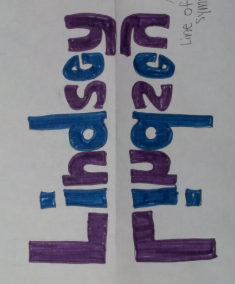 Lindsey
Lindsey
Line of
sym